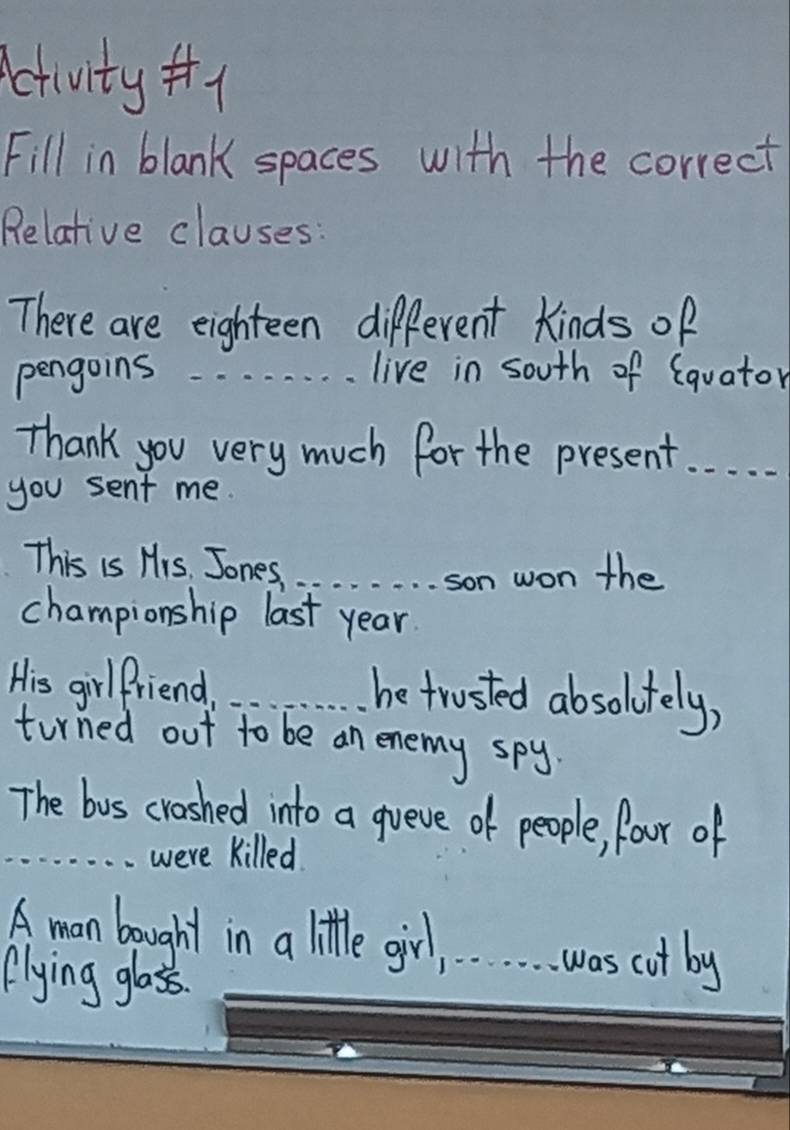 Activity #1
Fill in blank spaces with the correct
Relative clauses:
There are eighteen different kinds of
pengoins ......... live in south of Equator
Thank you very much for the present.....
you sent me.
This is Mrs. Jones, ......... son won the
championship last year.
His girlfriend, ......... he trusted absolutely,
turned out to be an enemy spy.
The bus crashed into a queve of people, four of
........ were killed.
A man bought in a little girl, ....... was cut by
flying glass.